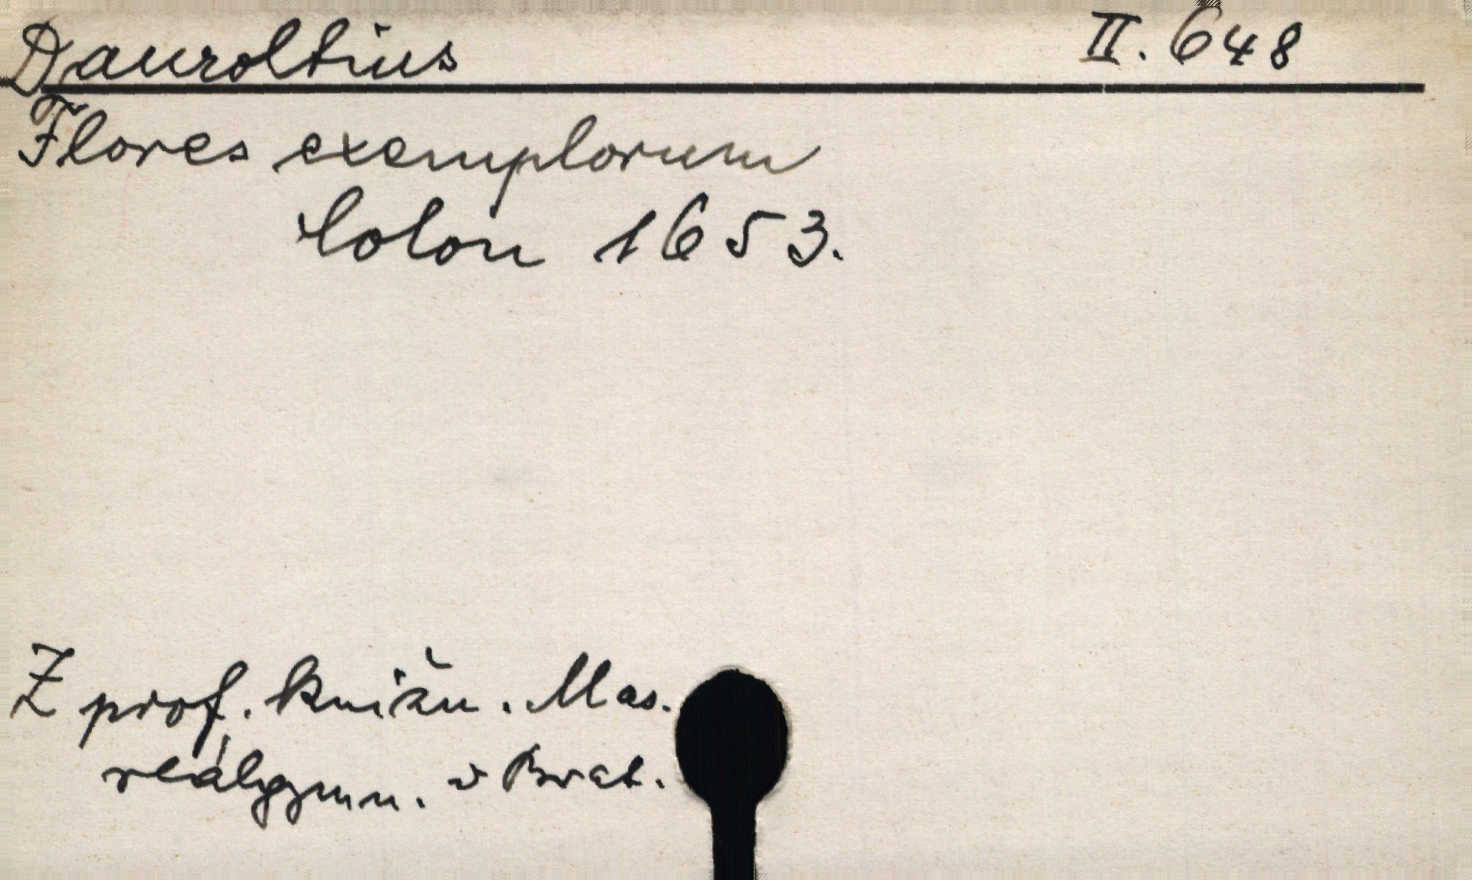 Dauroltius II. 648
Flores exemplorum
Colon 1653.
Z prof. knižn. Mas.
reálgymn. v Brat.